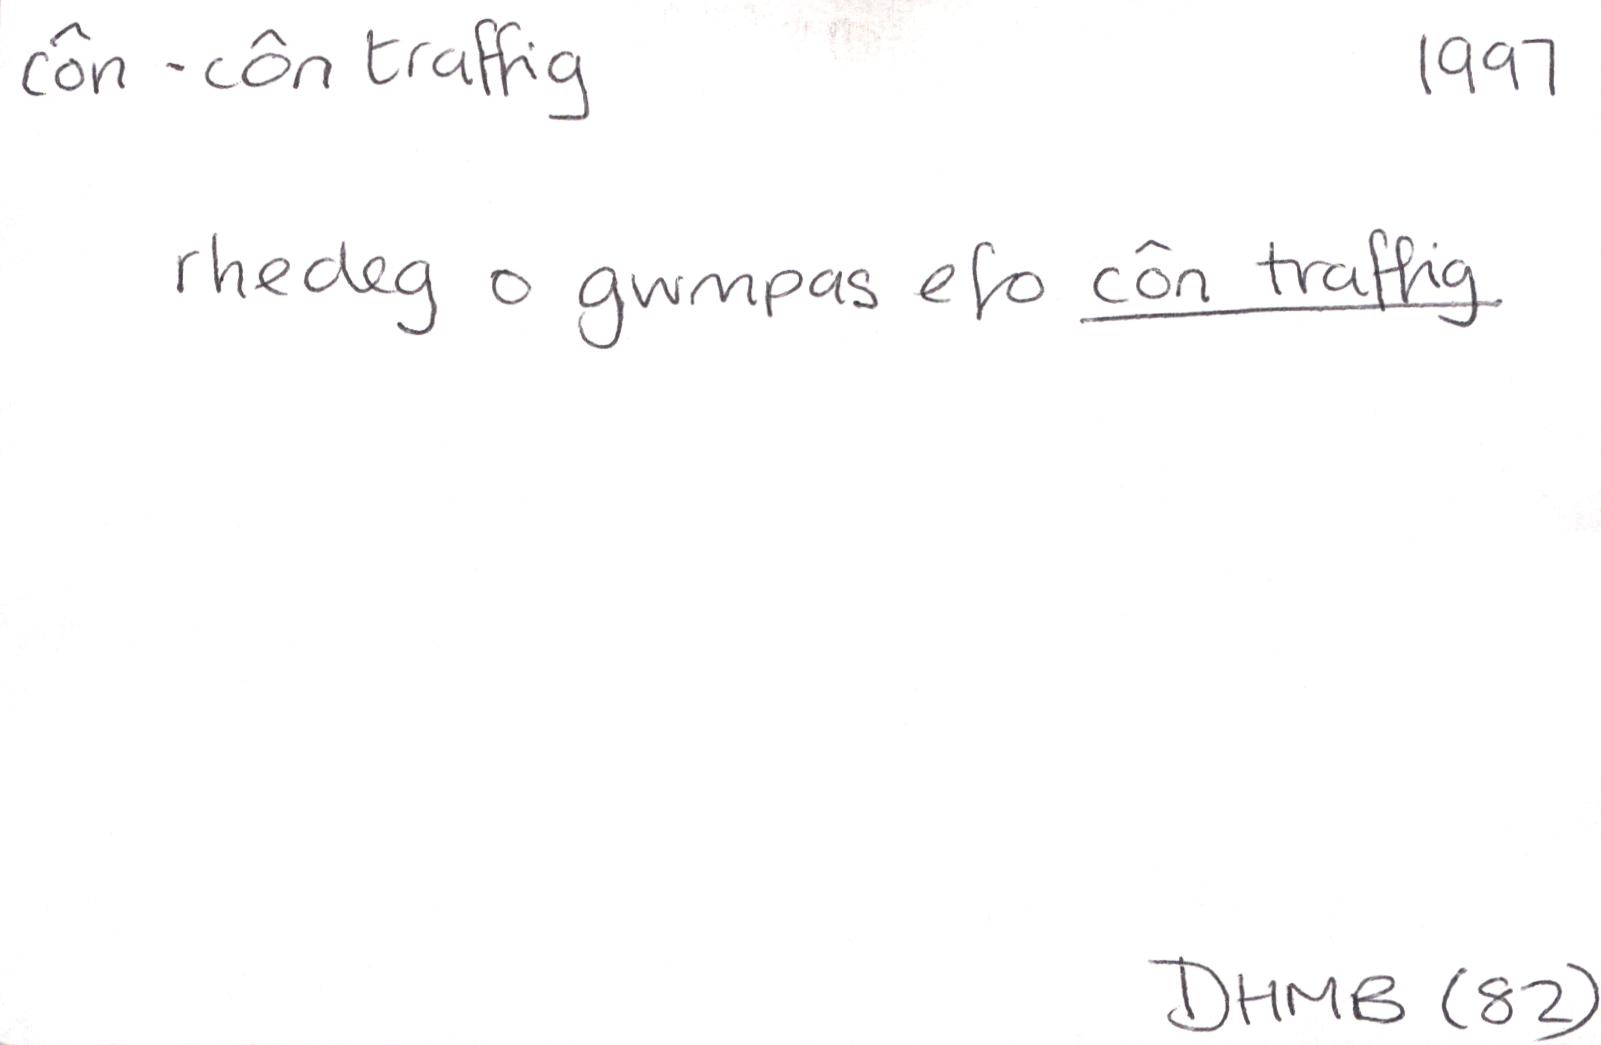 côn - côn traffig 1997
rhedeg o gwmpas efo côn traffig
DHMB (82)